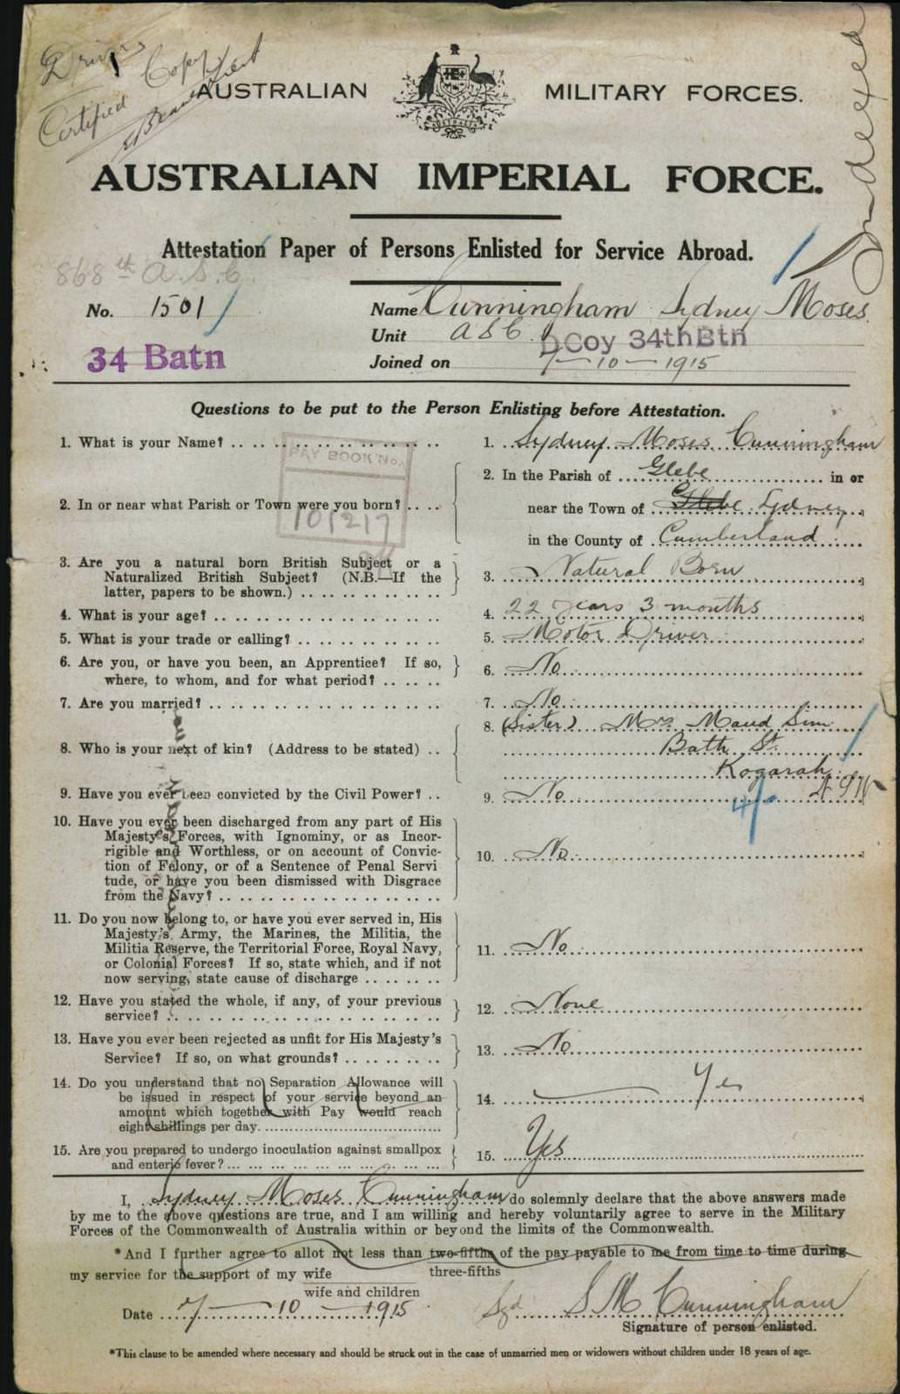 Driver
Certified Copy
Lieut
Indexed
AUSTRALIAN MILITARY FORCES.
AUSTRALIAN IMPERIAL FORCE.
Attestation Paper of Persons Enlisted for Service Abroad.
868th A.S.C.
No. 1501 Name Cunningham Sydney Moses
Unit ASC DCoy 34thBtn
34 Batn
Joined on 7-10-1915
Questions to be put to the Person Enlisting before Attestation.
1. What is your Name? 1. Sydney Moses Cunningham
PAY BOOK No.
101217
2. In or near what Parish or Town were you born? 2. In the Parish of Glebe in or
near the Town of Glebe Sydney
in the County of Cumberland
3. Are you a natural born British Subject or a
Naturalized British Subject? (N.B.—If the
latter, papers to be shown.) 3. Natural Born
4. What is your age? 4. 22 years 3 months
5. What is your trade or calling? 5. Motor Driver
6. Are you, or have you been, an Apprentice? If so,
where, to whom, and for what period? 6. No
7. Are you married? 7. No
8. Who is your next of kin? (Address to be stated) 8. (Sister) Mrs Maud Sim
Bath St.
Kogarah
NSW
9. Have you ever been convicted by the Civil Power? 9. No
10. Have you ever been discharged from any part of His
Majesty's Forces, with Ignominy, or as Incor-
rigible and Worthless, or on account of Convic-
tion of Felony, or of a Sentence of Penal Servi
tude, or have you been dismissed with Disgrace
from the Navy? 10. No
11. Do you now belong to, or have you ever served in, His
Majesty's Army, the Marines, the Militia, the
Militia Reserve, the Territorial Force, Royal Navy,
or Colonial Forces? If so, state which, and if not
now serving, state cause of discharge 11. No
12. Have you stated the whole, if any, of your previous
service? 12. None
13. Have you ever been rejected as unfit for His Majesty's
Service? If so, on what grounds? 13. No
14. Do you understand that no Separation Allowance will
be issued in respect of your service beyond an
amount which together with Pay would reach
eight shillings per day. 14. Yes
15. Are you prepared to undergo inoculation against smallpox
and enteric fever? 15. Yes
I, Sydney Moses Cunningham do solemnly declare that the above answers made
by me to the above questions are true, and I am willing and hereby voluntarily agree to serve in the Military
Forces of the Commonwealth of Australia within or beyond the limits of the Commonwealth.
*And I further agree to allot not less than two-fifths of the pay payable to me from time to time during
three-fifths
my service for the support of my wife
wife and children
Date 7-10-1915 Sgd S M Cunningham
Signature of person enlisted.
*This clause to be amended where necessary and should be struck out in the case of unmarried men or widowers without children under 18 years of age.